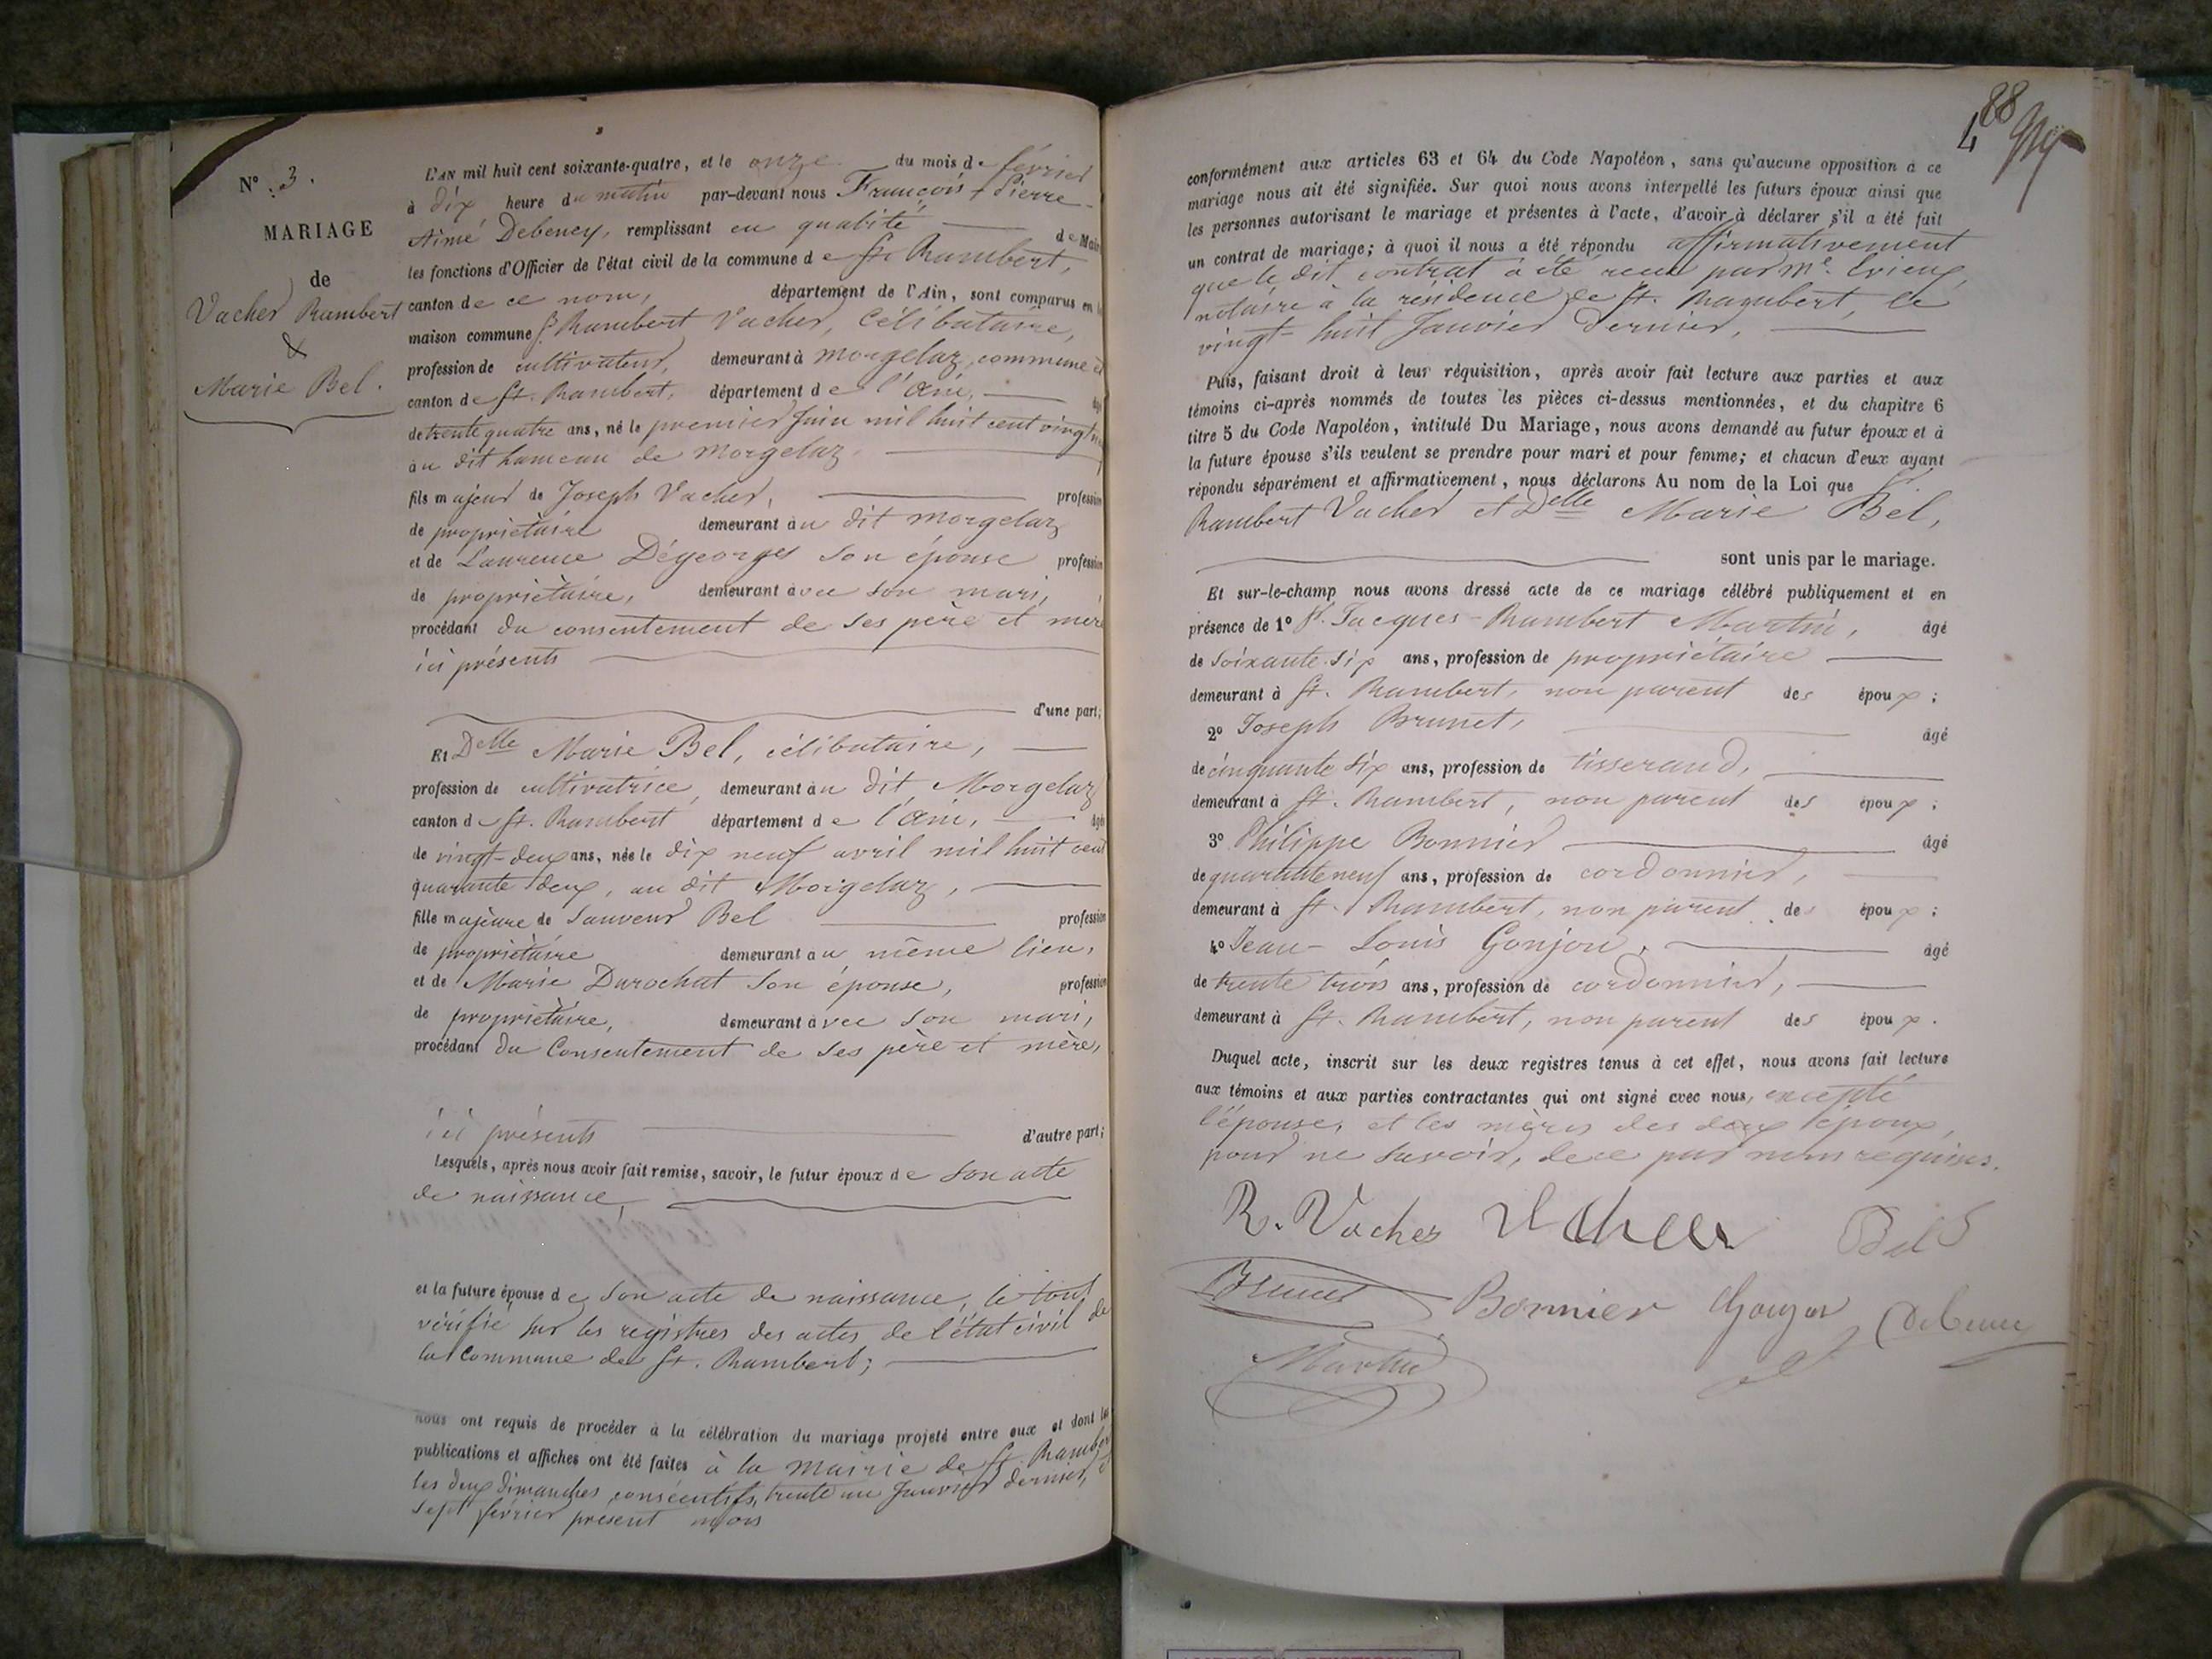 N° 3.
MARIAGE
de
Vacher Rambert
&
Marie Bel.
L'AN mil huit cent soixante-quatre, et le onze du mois de février
à dix heure du matin par-devant nous François Pierre-
Aimé Debeney, remplissant en qualité de Mair
les fonctions d'Officier de l'état civil de la commune de St. Rambert,
canton de ce nom, département de l'Ain, sont comparus en l
maison commune Sr. Rambert Vacher, Célibataire,
profession de cultivateur, demeurant à Morgelaz, commune et
canton de St. Rambert, département de l'Ain, âgé
de trente quatre ans, né le premier Juin mil huit cent vingt
au dit hameau de Morgelaz.
fils majeur de Joseph Vacher, profession
de propriétaire demeurant au dit Morgelaz
et de Laurence Dégeorges son épouse profession
de propriétaire, demeurant avec son mari,
procédant du consentement de ses père et mère
ici présents
d'une part;
Et Delle Marie Bel, célibataire,
profession de cultivatrice, demeurant au dit Morgelaz
canton de St. Rambert département de l'Ain, âgée
de vingt-deux ans, née le dix neuf avril mil huit cent
quarante deux, au dit Morgelaz,
fille majeure de Sauveur Bel profession
de propriétaire demeurant au même lieu,
et de Marie Durochat son épouse, profession
de propriétaire, demeurant avec son mari,
procédant du Consentement de ses père et mère,
ici présents d'autre part;
Lesquels, après nous avoir fait remise, savoir, le futur époux de son acte
de naissance,
et la future épouse de son acte de naissance, le tout
vérifié sur les registres des actes de l'état civil de
la Commune de St. Rambert;
nous ont requis de procéder à la célébration du mariage projeté entre eux et dont les
publications et affiches ont été faites à la mairie de St. Rambert
les deux dimanches consécutifs, trente un Janvier dernier, et
sept février présent mois
88
4
conformément aux articles 63 et 64 du Code Napoléon, sans qu'aucune opposition à ce
mariage nous ait été signifiée. Sur quoi nous avons interpellé les futurs époux ainsi que
les personnes autorisant le mariage et présentes à l'acte, d'avoir à déclarer s'il a été fait
un contrat de mariage; à quoi il nous a été répondu affirmativement
que le dit contrat à été reçu par Me.
notaire à la résidence de St. Rambert, le
vingt-huit Janvier dernier,
Puis, faisant droit à leur réquisition, après avoir fait lecture aux parties et aux
témoins ci-après nommés de toutes les pièces ci-dessus mentionnées, et du chapitre 6
titre 5 du Code Napoléon, intitulé Du Mariage, nous avons demandé au futur époux et à
la future épouse s'ils veulent se prendre pour mari et pour femme; et chacun d'eux ayant
répondu séparément et affirmativement, nous déclarons Au nom de la Loi que Sr.
Rambert Vacher et Delle Marie Bel,
sont unis par le mariage.
Et sur-le-champ nous avons dressé acte de ce mariage célébré publiquement et en
présence de 1° Sr. Jacques-Rambert Martin, âgé
de soixante-six ans, profession de propriétaire
demeurant à St. Rambert, non parent des époux;
2° Joseph Brunet, âgé
de cinquante six ans, profession de tisserand,
demeurant à St. Rambert, non parent des époux;
3° Philippe Bonnier âgé
de quarante neuf ans, profession de cordonnier,
demeurant à St. Rambert, non parent des époux;
4° Jean-Louis Gonjon, âgé
de trente trois ans, profession de cordonnier,
demeurant à St. Rambert, non parent des époux.
Duquel acte, inscrit sur les deux registres tenus à cet effet, nous avons fait lecture
aux témoins et aux parties contractantes qui ont signé avec nous, excepté
l'épouse, et les mères des deux époux,
pour ne savoir, de ce par nous requises.
R. Vacher Vacher Bel
Brunet Bonnier Debeney
Martin